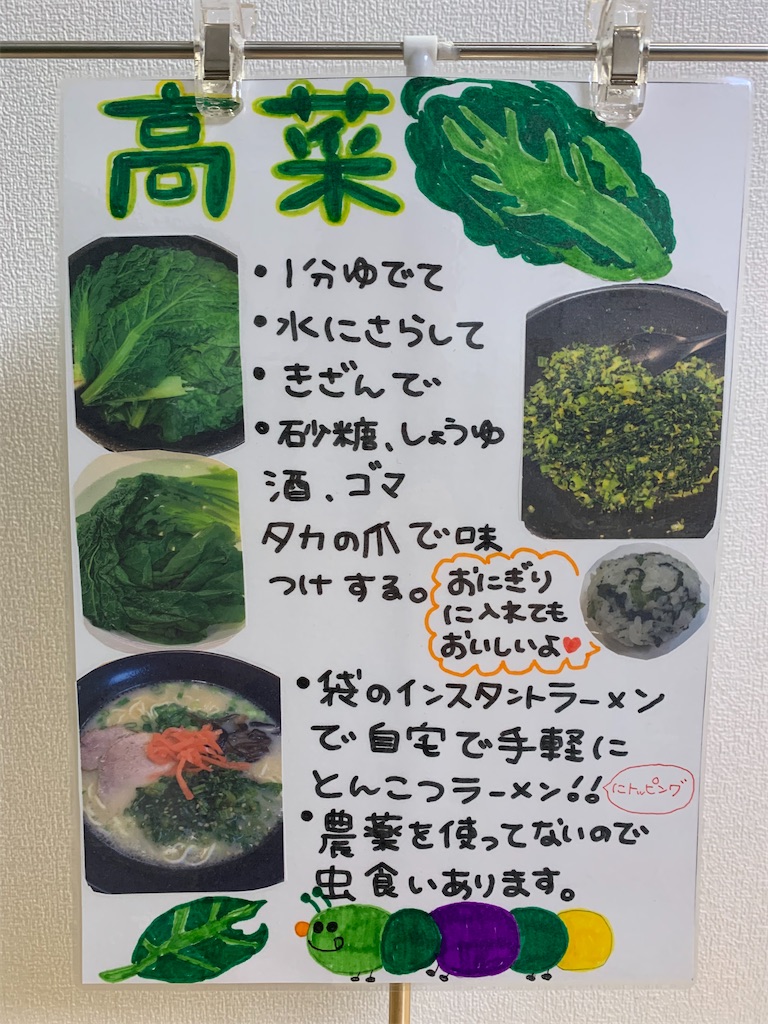 高菜
・1分ゆでて
・水にさらして
・きざんで
・砂糖、しょうゆ
酒、ゴマ
タカの爪で味
つけする。
おにぎり
に入れても
おいしいよ♥
・袋のインスタントラーメン
で自宅で手軽に
とんこつラーメン!!
にトッピング
・農薬を使ってないので
虫食いあります。